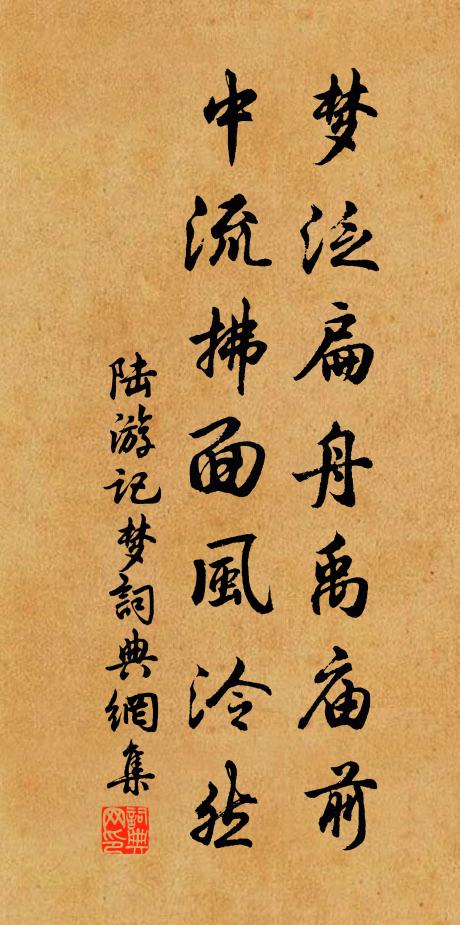 梦泛扁舟禹庙前
中流拂面風泠然
陆游记梦詞典網集
詞典网印